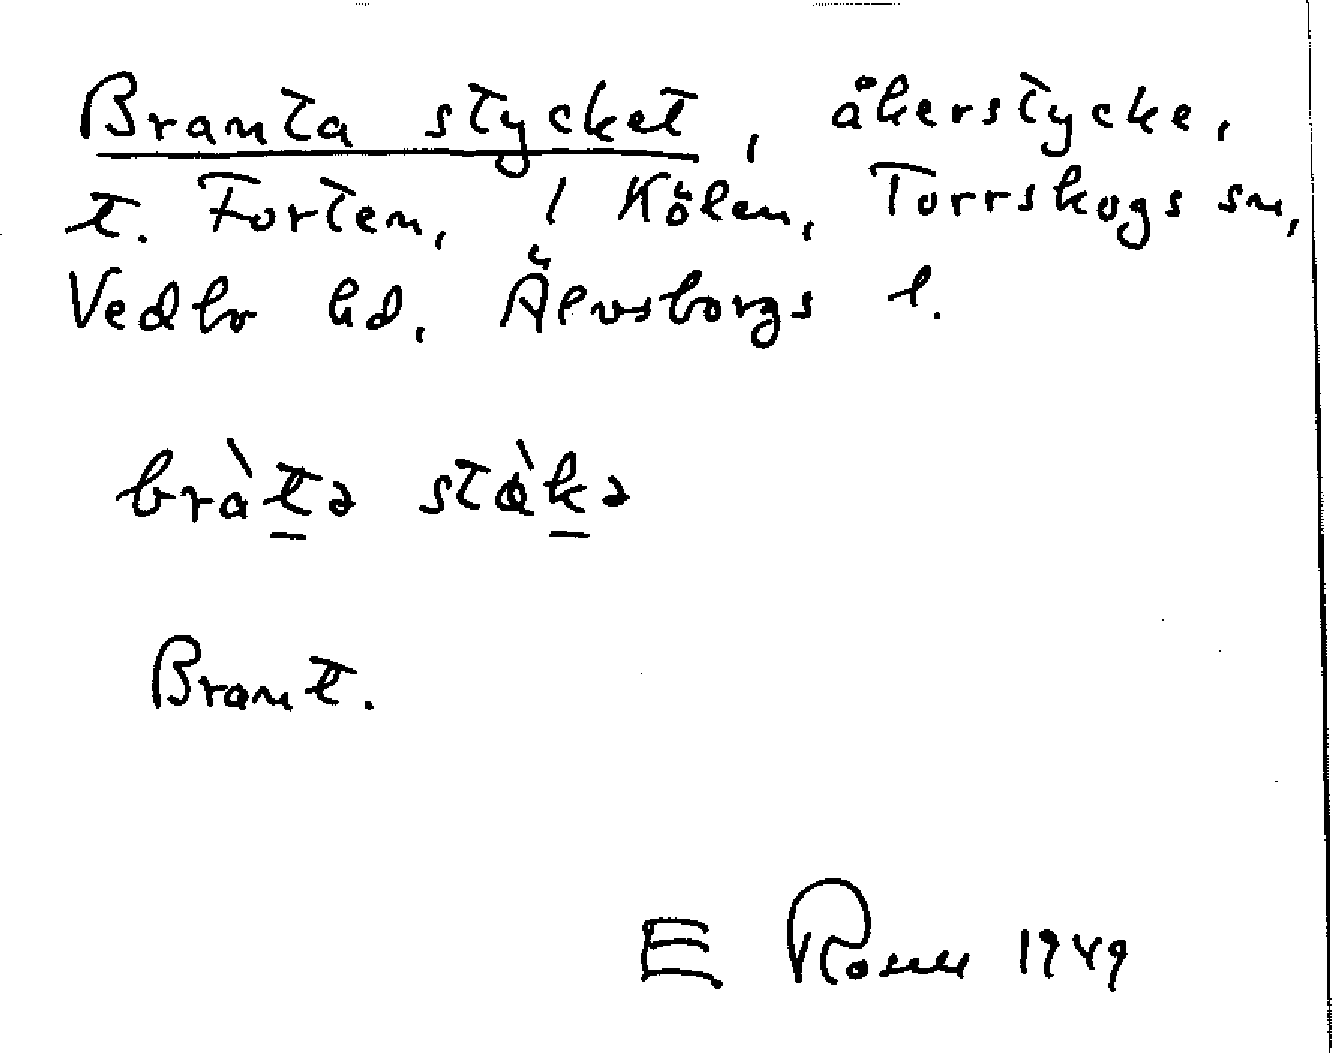 Branta stycket, åkerstycke,
t. Forten, i Kölen, Torrskogs sn,
Vedbo hd, Älvsborgs l.
bràtə stàkə
Brant.
E 1949